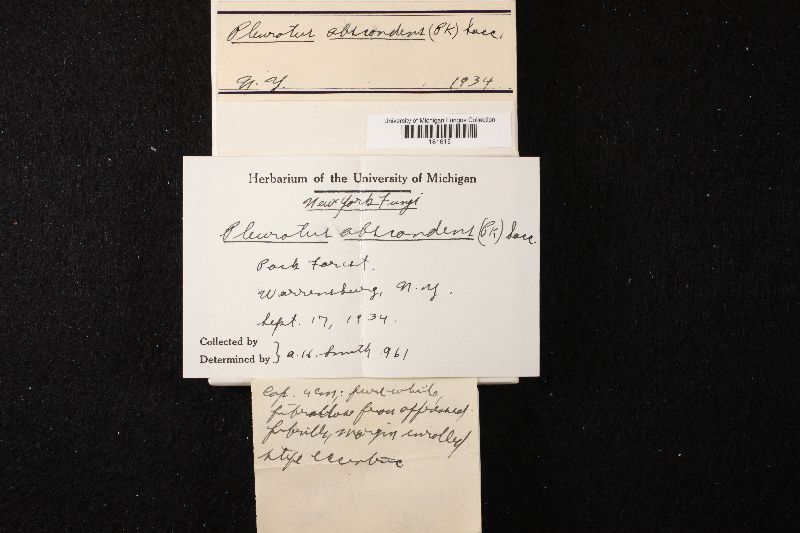 Pleurotus abscondens (Pk) Sacc.
N. Y. 1934
University of Michigan Fungus Collection
Herbarium of the University of Michigan
New York Fungi
Pleurotus abscondens (Pk) Sacc.
Pack Forest.
Warrensburg, N.Y.
Sept. 17, 1934.
Collected by
Determined by } A.H. Smith 961
Cap. 4 cm; pure white,
fibrillose from appressed
fibrils, margin enrolled
stipe eccentric